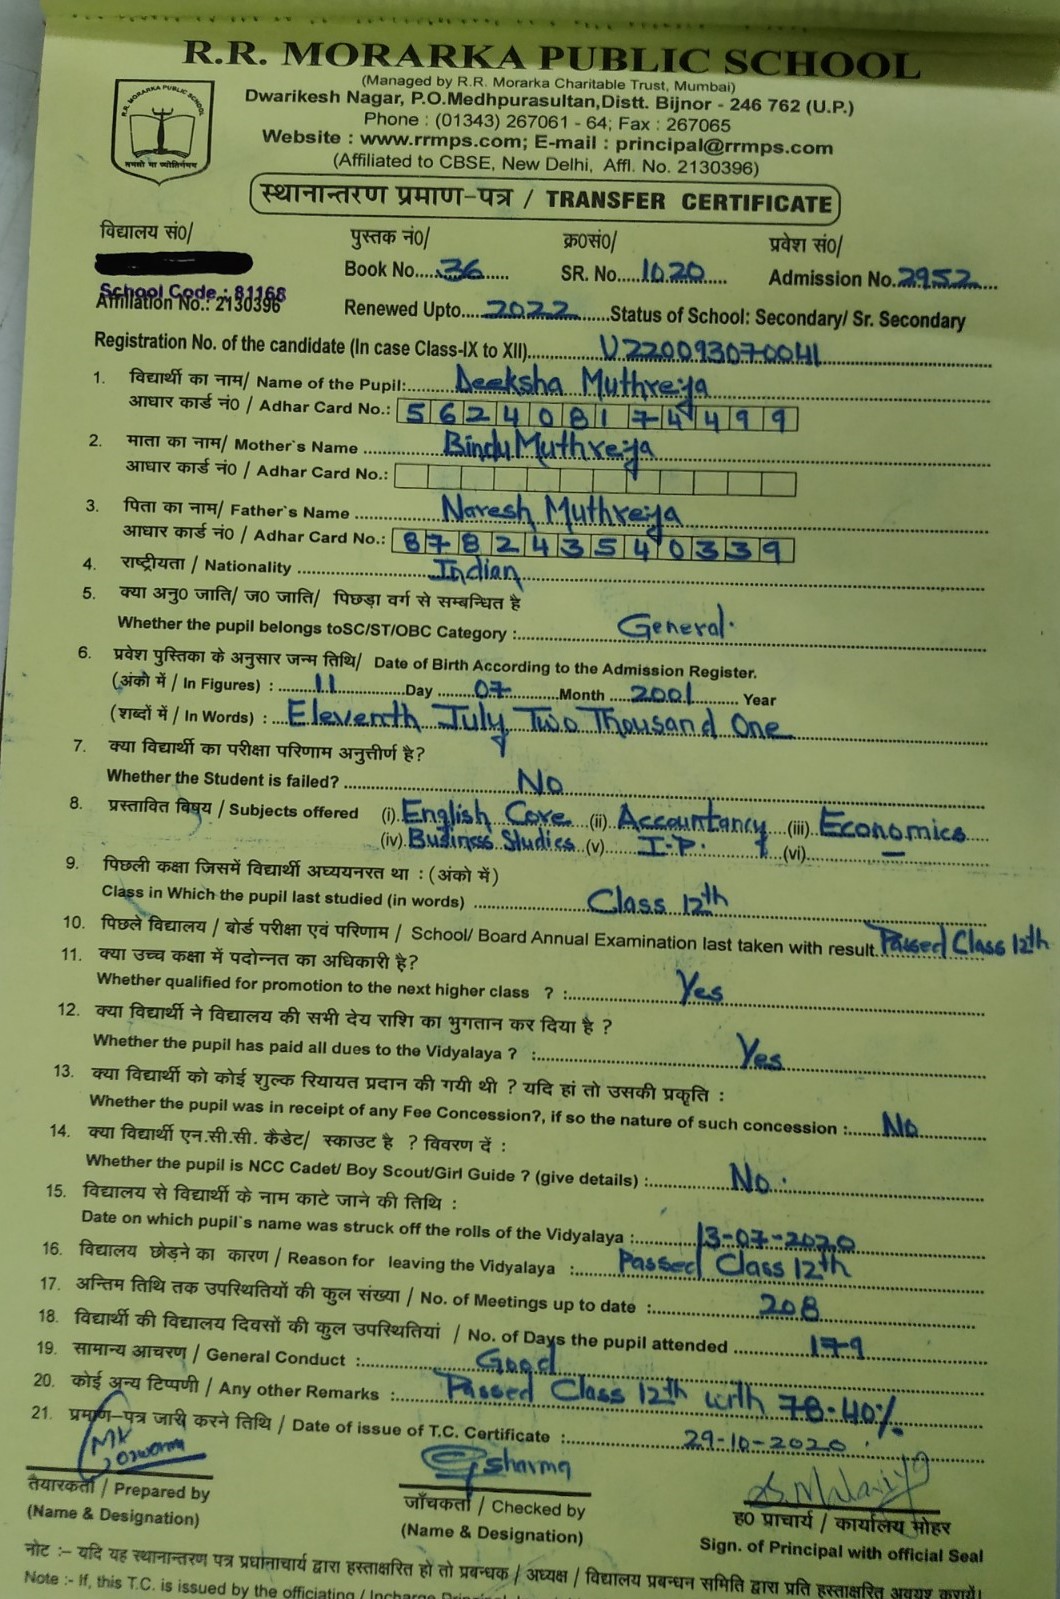 R.R. MORARKA PUBLIC SCHOOL
(Managed by R.R. Morarka Charitable Trust, Mumbai)
Dwarikesh Nagar, P.O.Medhpurasultan,Distt. Bijnor - 246 762 (U.P.)
Phone : (01343) 267061 - 64; Fax : 267065
Website : www.rrmps.com; E-mail : principal@rrmps.com
(Affiliated to CBSE, New Delhi, Affl. No. 2130396)
R.R. MORARKA PUBLIC SCHOOL
तमसो मा ज्योतिर्गमय
स्थानान्तरण प्रमाण-पत्र / TRANSFER CERTIFICATE
विद्यालय सं0/ पुस्तक नं0/ क्र0सं0/ प्रवेश सं0/
Book No.....36...... SR. No....1020...... Admission No.2952....
School Code : 81168
Affiliation No.: 2130396 Renewed Upto.....2022.....Status of School: Secondary/ Sr. Secondary
Registration No. of the candidate (In case Class-IX to XII)............U220093070041
1. विद्यार्थी का नाम/ Name of the Pupil:........Deeksha Muthreja
आधार कार्ड नं0 / Adhar Card No.: 562408174499
2. माता का नाम/ Mother's Name ............Bindu Muthreja
आधार कार्ड नं0 / Adhar Card No.:
3. पिता का नाम/ Father's Name ............Naresh Muthreja
आधार कार्ड नं0 / Adhar Card No.: 878243540339
4. राष्ट्रीयता / Nationality ............Indian
5. क्या अनु0 जाति/ ज0 जाति/ पिछड़ा वर्ग से सम्बन्धित है
Whether the pupil belongs toSC/ST/OBC Category :............General.
6. प्रवेश पुस्तिका के अनुसार जन्म तिथि/ Date of Birth According to the Admission Register.
(अंको में / In Figures) : ......11......Day ......07......Month ...2001...... Year
(शब्दों में / In Words) : ...Eleventh July Two Thousand One
7. क्या विद्यार्थी का परीक्षा परिणाम अनुत्तीर्ण है?
Whether the Student is failed? ............No
8. प्रस्तावित विषय / Subjects offered (i) English Core (ii) Accountancy (iii) Economics
(iv) Business Studies (v) I.P. (vi) —
9. पिछली कक्षा जिसमें विद्यार्थी अध्ययनरत था : (अंको में)
Class in Which the pupil last studied (in words) ............Class 12th
10. पिछले विद्यालय / बोर्ड परीक्षा एवं परिणाम / School/ Board Annual Examination last taken with result Passed Class 12th
11. क्या उच्च कक्षा में पदोन्नत का अधिकारी है?
Whether qualified for promotion to the next higher class ? :............Yes
12. क्या विद्यार्थी ने विद्यालय की सभी देय राशि का भुगतान कर दिया है ?
Whether the pupil has paid all dues to the Vidyalaya ? :............Yes
13. क्या विद्यार्थी को कोई शुल्क रियायत प्रदान की गयी थी ? यदि हां तो उसकी प्रकृति :
Whether the pupil was in receipt of any Fee Concession?, if so the nature of such concession :......No
14. क्या विद्यार्थी एन.सी.सी. कैडेट/ स्काउट है ? विवरण दें :
Whether the pupil is NCC Cadet/ Boy Scout/Girl Guide ? (give details) :............No.
15. विद्यालय से विद्यार्थी के नाम काटे जाने की तिथि :
Date on which pupil's name was struck off the rolls of the Vidyalaya :............13-07-2020
16. विद्यालय छोड़ने का कारण / Reason for leaving the Vidyalaya :......Passed Class 12th
17. अन्तिम तिथि तक उपस्थितियों की कुल संख्या / No. of Meetings up to date :............208
18. विद्यार्थी की विद्यालय दिवसों की कुल उपस्थितियां / No. of Days the pupil attended ............179
19. सामान्य आचरण / General Conduct :............Good
20. कोई अन्य टिप्पणी / Any other Remarks :......Passed Class 12th with 78.40%.
21. प्रमाण-पत्र जारी करने तिथि / Date of issue of T.C. Certificate :............29-10-2020
Sharma
तैयारकर्ता / Prepared by जाँचकर्ता / Checked by ह0 प्राचार्य / कार्यालय मोहर
(Name & Designation) (Name & Designation) Sign. of Principal with official Seal
नोट :- यदि यह स्थानान्तरण पत्र प्रधानाचार्य द्वारा हस्ताक्षरित हो तो प्रबन्धक / अध्यक्ष / विद्यालय प्रबन्धन समिति द्वारा प्रति हस्ताक्षरित अवश्य करायें।
Note :- If, this T.C. is issued by the officiating / Incharge Principal,